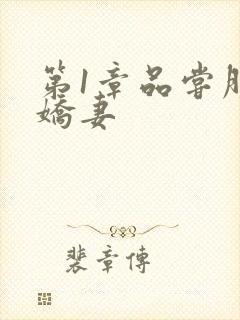 第1章品尝
娇妻
裴章傳